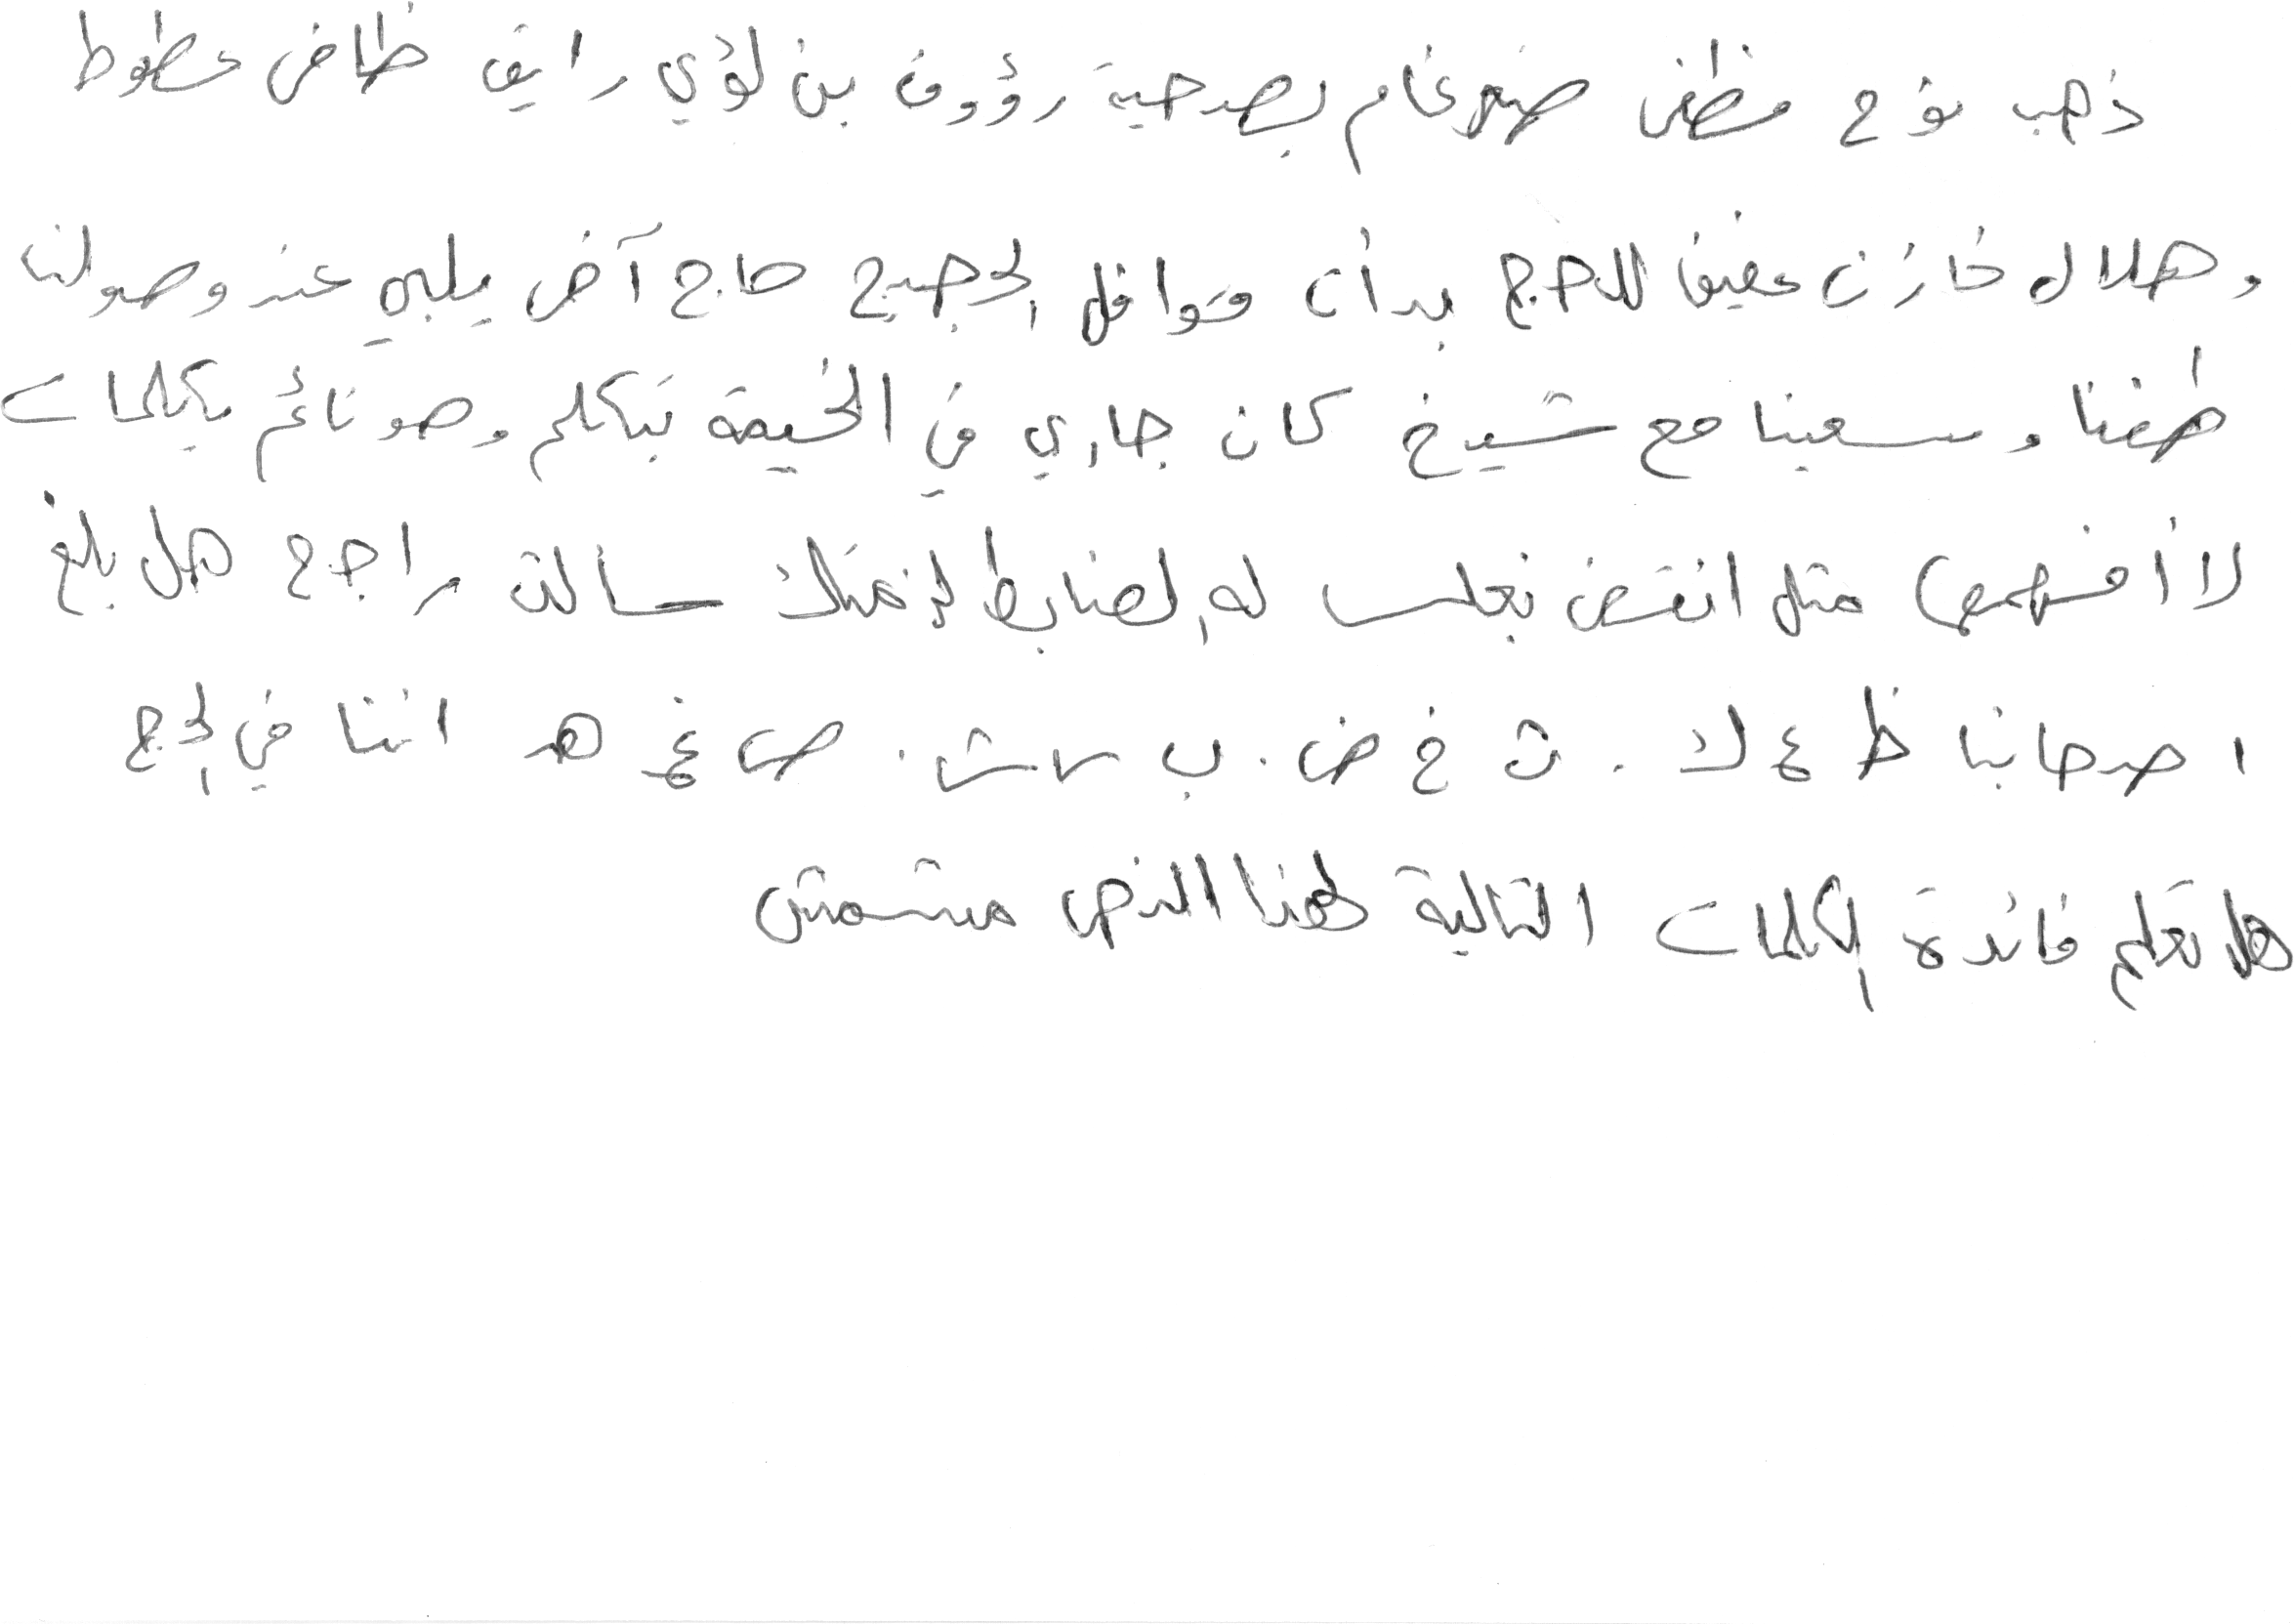 ذهب نوح مظفر ضرغام بصحبة رؤوف بن لؤي رايق ظافر محظوظ
و هلال خازن عفيف للحج بدأت قوافل الحجيج حاج آخر يلبي عند وصولنا
طفنا وسعينا مع شيخ كان جاري في الخيمة يتكلم وهو نائم بكلمات
لا أفهمها مثل انتفض ثعلب له الضابط لأخمنك سألت راجح هل بلغ
اصحابنا ظ ع ك . ث خ ض . ب س ش . ص غ هـ اننا في الحج
هل تعلم فائدة الكلمات التالية لهذا النص مشمش